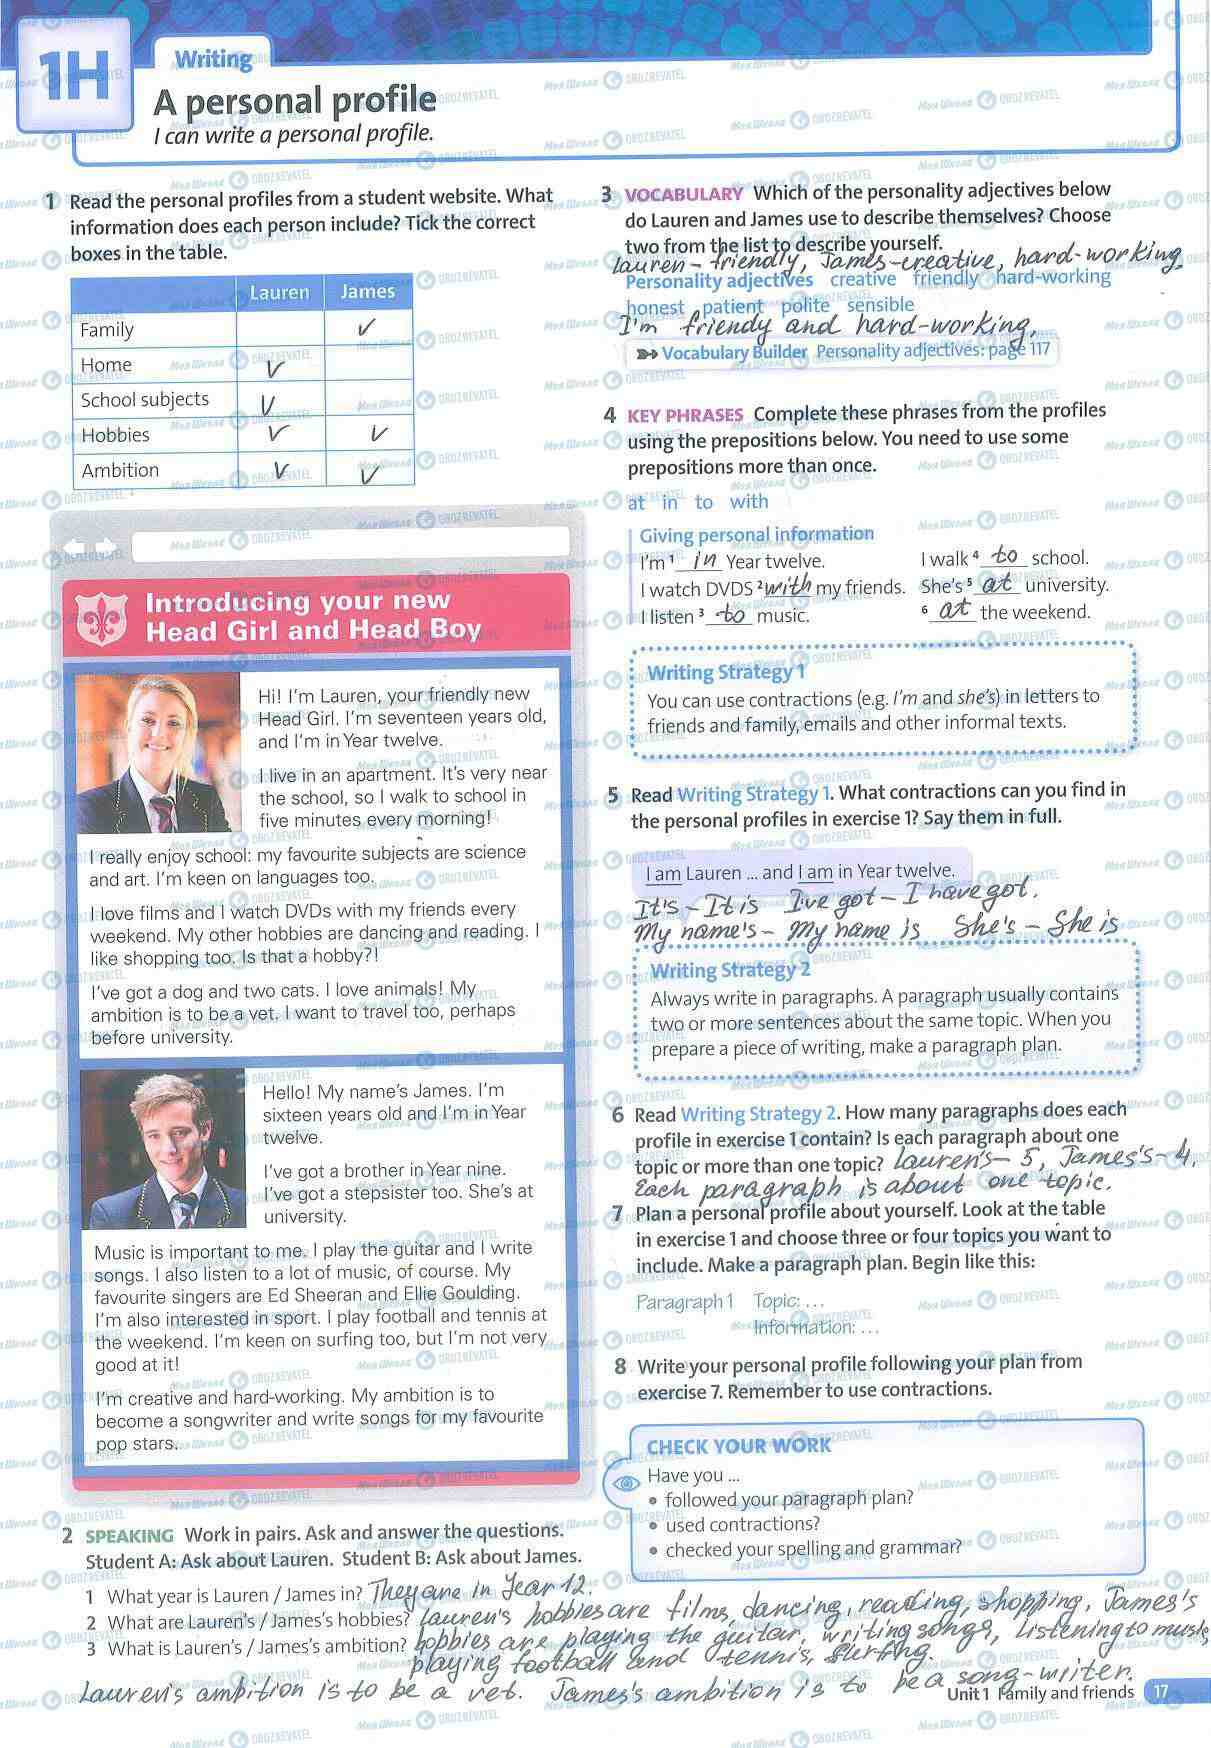 1H
Writing
A personal profile
I can write a personal profile.
1 Read the personal profiles from a student website. What
information does each person include? Tick the correct
boxes in the table.
Lauren James
Family ✓
Home ✓
School subjects ✓
Hobbies ✓ ✓
Ambition ✓ ✓
Introducing your new
Head Girl and Head Boy
Hi! I'm Lauren, your friendly new
Head Girl. I'm seventeen years old,
and I'm in Year twelve.
I live in an apartment. It's very near
the school, so I walk to school in
five minutes every morning!
I really enjoy school: my favourite subjects are science
and art. I'm keen on languages too.
I love films and I watch DVDs with my friends every
weekend. My other hobbies are dancing and reading. I
like shopping too. Is that a hobby?!
I've got a dog and two cats. I love animals! My
ambition is to be a vet. I want to travel too, perhaps
before university.
Hello! My name's James. I'm
sixteen years old and I'm in Year
twelve.
I've got a brother in Year nine.
I've got a stepsister too. She's at
university.
Music is important to me. I play the guitar and I write
songs. I also listen to a lot of music, of course. My
favourite singers are Ed Sheeran and Ellie Goulding.
I'm also interested in sport. I play football and tennis at
the weekend. I'm keen on surfing too, but I'm not very
good at it!
I'm creative and hard-working. My ambition is to
become a songwriter and write songs for my favourite
pop stars.
2 SPEAKING Work in pairs. Ask and answer the questions.
Student A: Ask about Lauren. Student B: Ask about James.
1 What year is Lauren / James in? They are in Year 12.
2 What are Lauren's / James's hobbies? Lauren's hobbies are films, dancing, reading, shopping. James's
3 What is Lauren's / James's ambition? hobbies are playing the guitar, writing songs, listening to music
playing football and tennis, surfing.
Lauren's ambition is to be a vet. James's ambition is to be a song-writer.
3 VOCABULARY Which of the personality adjectives below
do Lauren and James use to describe themselves? Choose
two from the list to describe yourself.
Lauren - friendly, James-creative, hard-working.
Personality adjectives creative friendly hard-working
honest patient polite sensible
I'm friendy and hard-working.
Vocabulary Builder Personality adjectives: page 117
4 KEY PHRASES Complete these phrases from the profiles
using the prepositions below. You need to use some
prepositions more than once.
at in to with
Giving personal information
I'm 1 in Year twelve.
I watch DVDS 2 with my friends.
I listen 3 to music.
I walk 4 to school.
She's 5 at university.
6 at the weekend.
Writing Strategy 1
You can use contractions (e.g. I'm and she's) in letters to
friends and family, emails and other informal texts.
5 Read Writing Strategy 1. What contractions can you find in
the personal profiles in exercise 1? Say them in full.
I am Lauren ... and I am in Year twelve.
It's - It is I've got - I have got.
My name's - My name is She's - She is
Writing Strategy 2
Always write in paragraphs. A paragraph usually contains
two or more sentences about the same topic. When you
prepare a piece of writing, make a paragraph plan.
6 Read Writing Strategy 2. How many paragraphs does each
profile in exercise 1 contain? Is each paragraph about one
topic or more than one topic? Lauren's - 5, James's - 4.
Each paragraph is about one topic.
7 Plan a personal profile about yourself. Look at the table
in exercise 1 and choose three or four topics you want to
include. Make a paragraph plan. Begin like this:
Paragraph 1 Topic: ...
Information: ...
8 Write your personal profile following your plan from
exercise 7. Remember to use contractions.
CHECK YOUR WORK
Have you ...
• followed your paragraph plan?
• used contractions?
• checked your spelling and grammar?
Unit 1 Family and friends 17